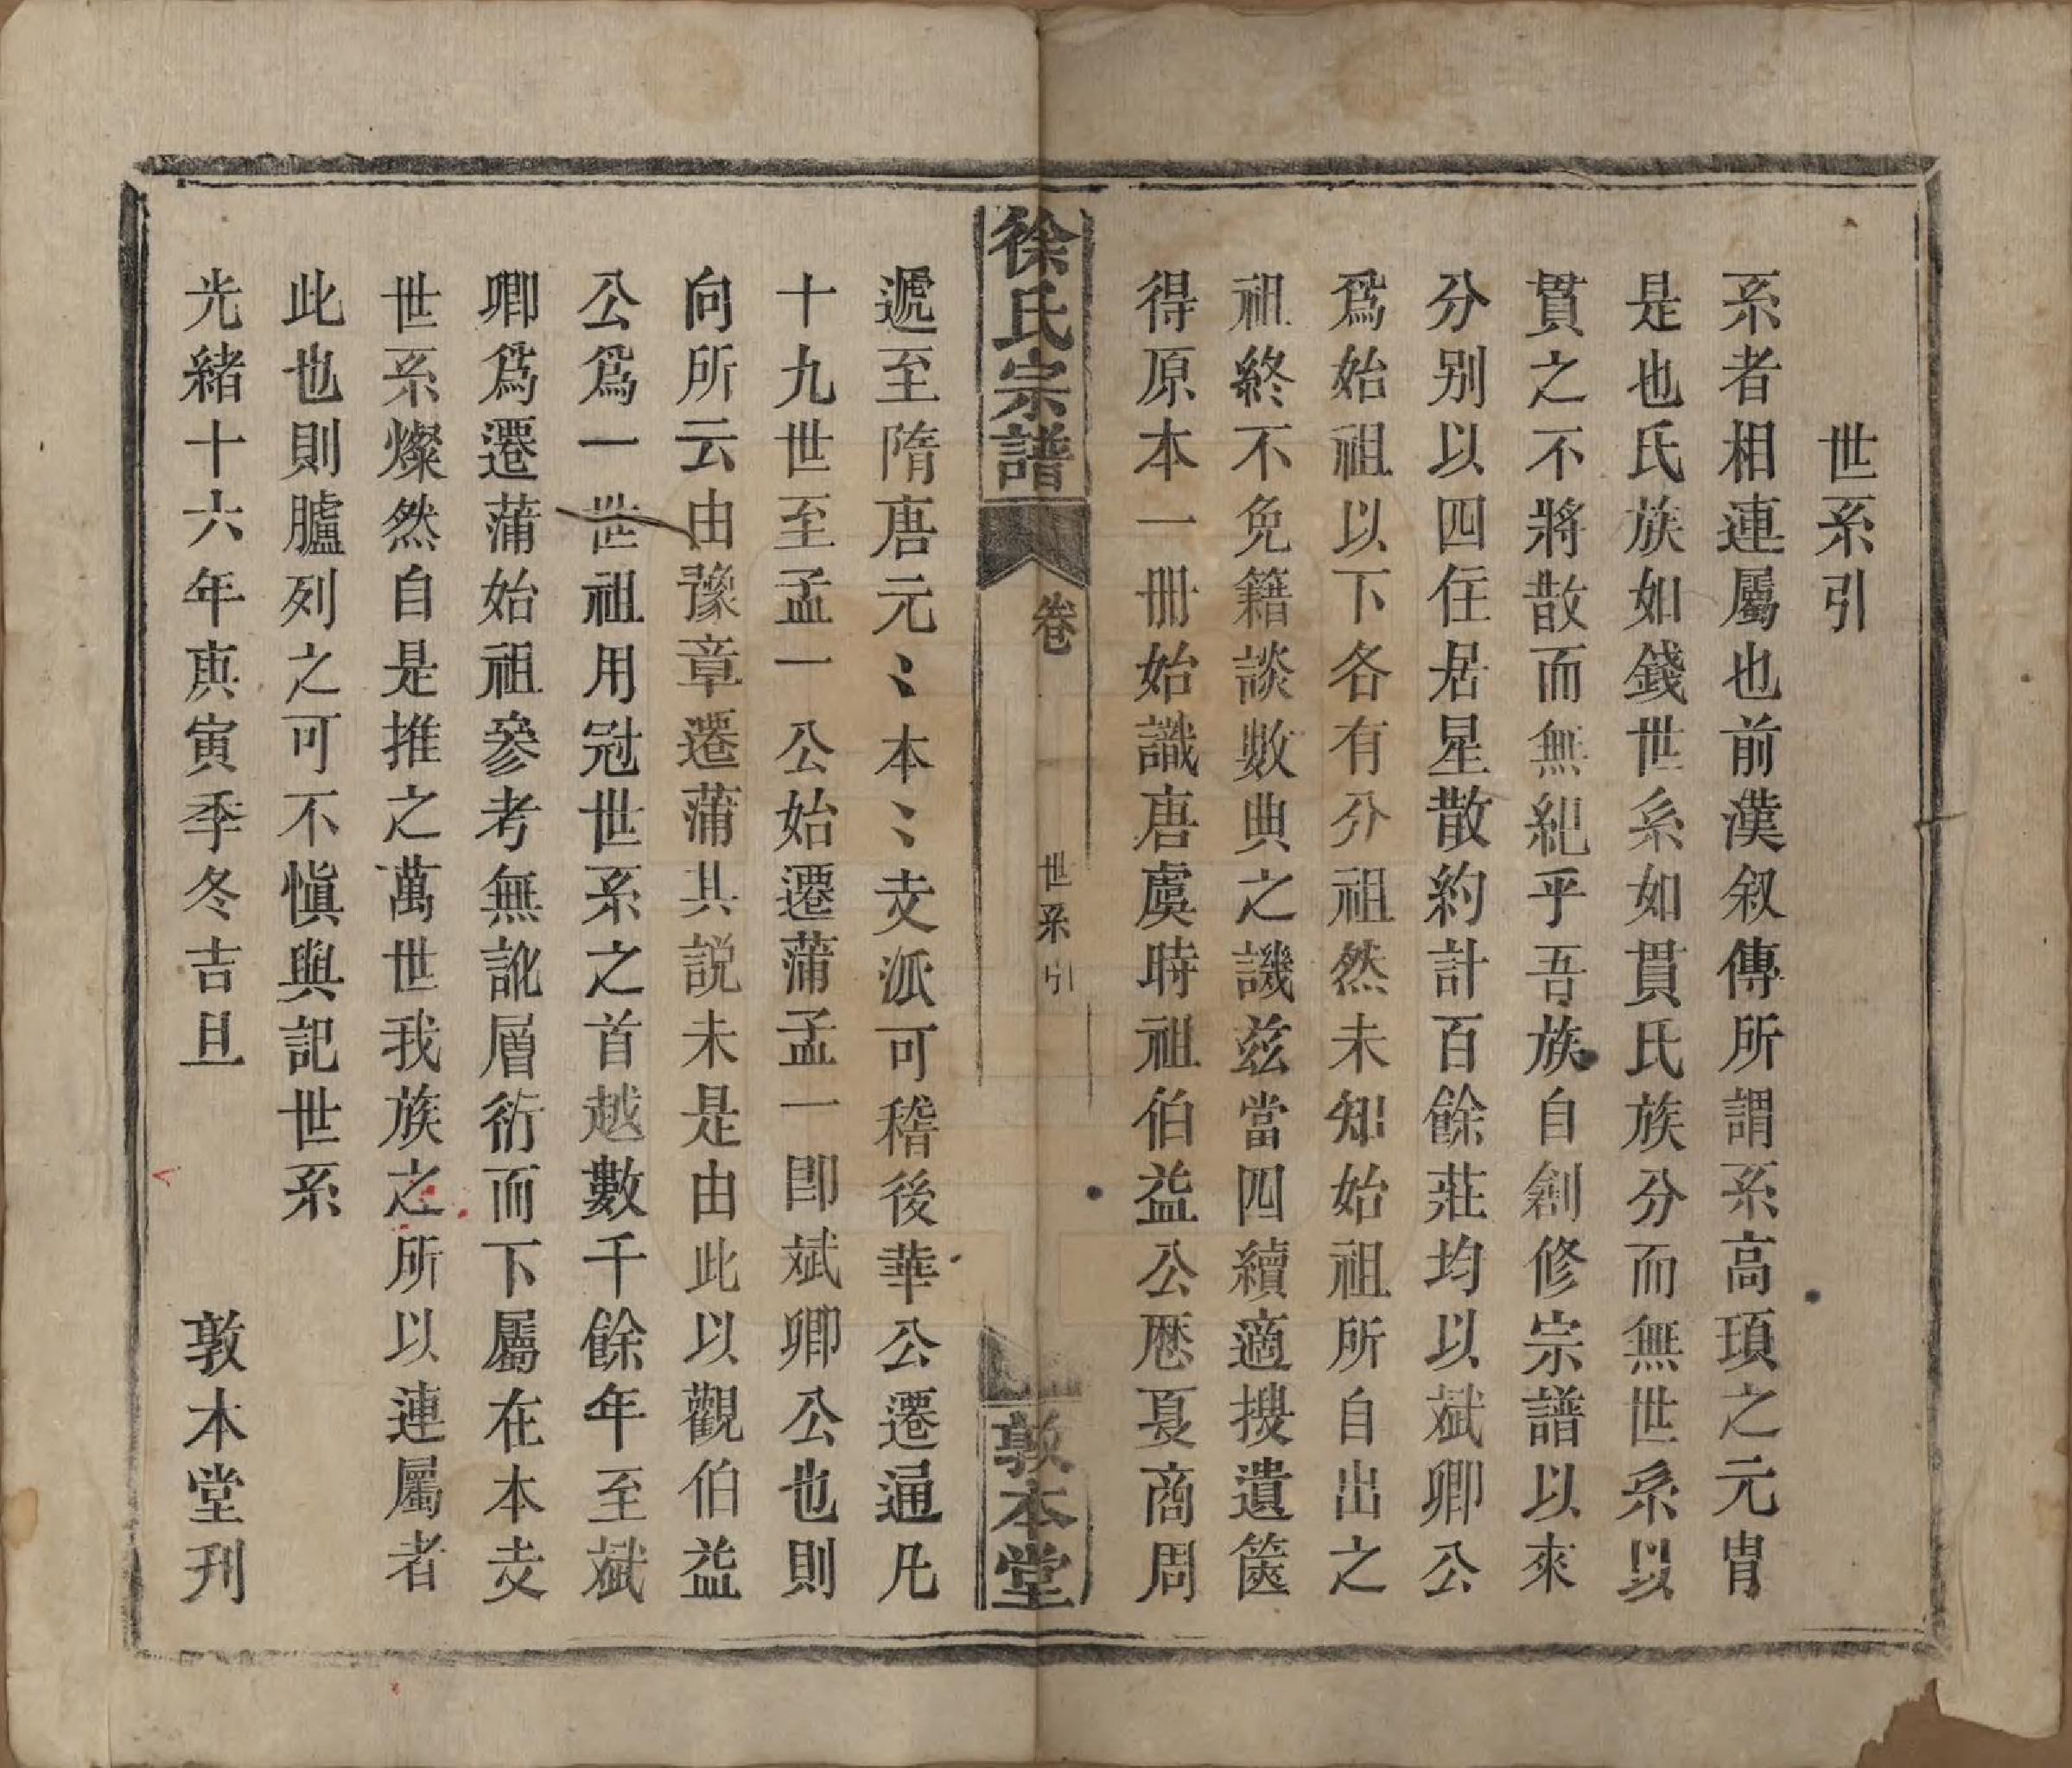 世系引
系者相連屬也前漢叙傳所謂系高頊之元胄
是也氏族如錢世系如貫氏族分而無世系以
貫之不將散而無紀乎吾族自創修宗譜以來
分别以四住居星散約計百餘莊均以斌卿公
爲始祖以下各有分祖然未知始祖所自出之
祖終不免籍談數典之譏兹當四續適搜遺篋
得原本一册始識唐虞時祖伯益公歷夏商周
徐氏宗譜 卷 世系引 敦本堂
遞至隋唐元〻本〻支派可稽後華公遷通凡
十九世至孟一公始遷蒲孟一卽斌卿公也則
向所云由豫章遷蒲其説未是由此以觀伯益
公爲一世祖用冠世系之首越數千餘年至斌
卿爲遷蒲始祖參考無訛層衍而下屬在本支
世系燦然自是推之萬世我族之所以連屬者
此也則臚列之可不愼與記世系
光緒十六年庚寅季冬吉旦 敦本堂刊